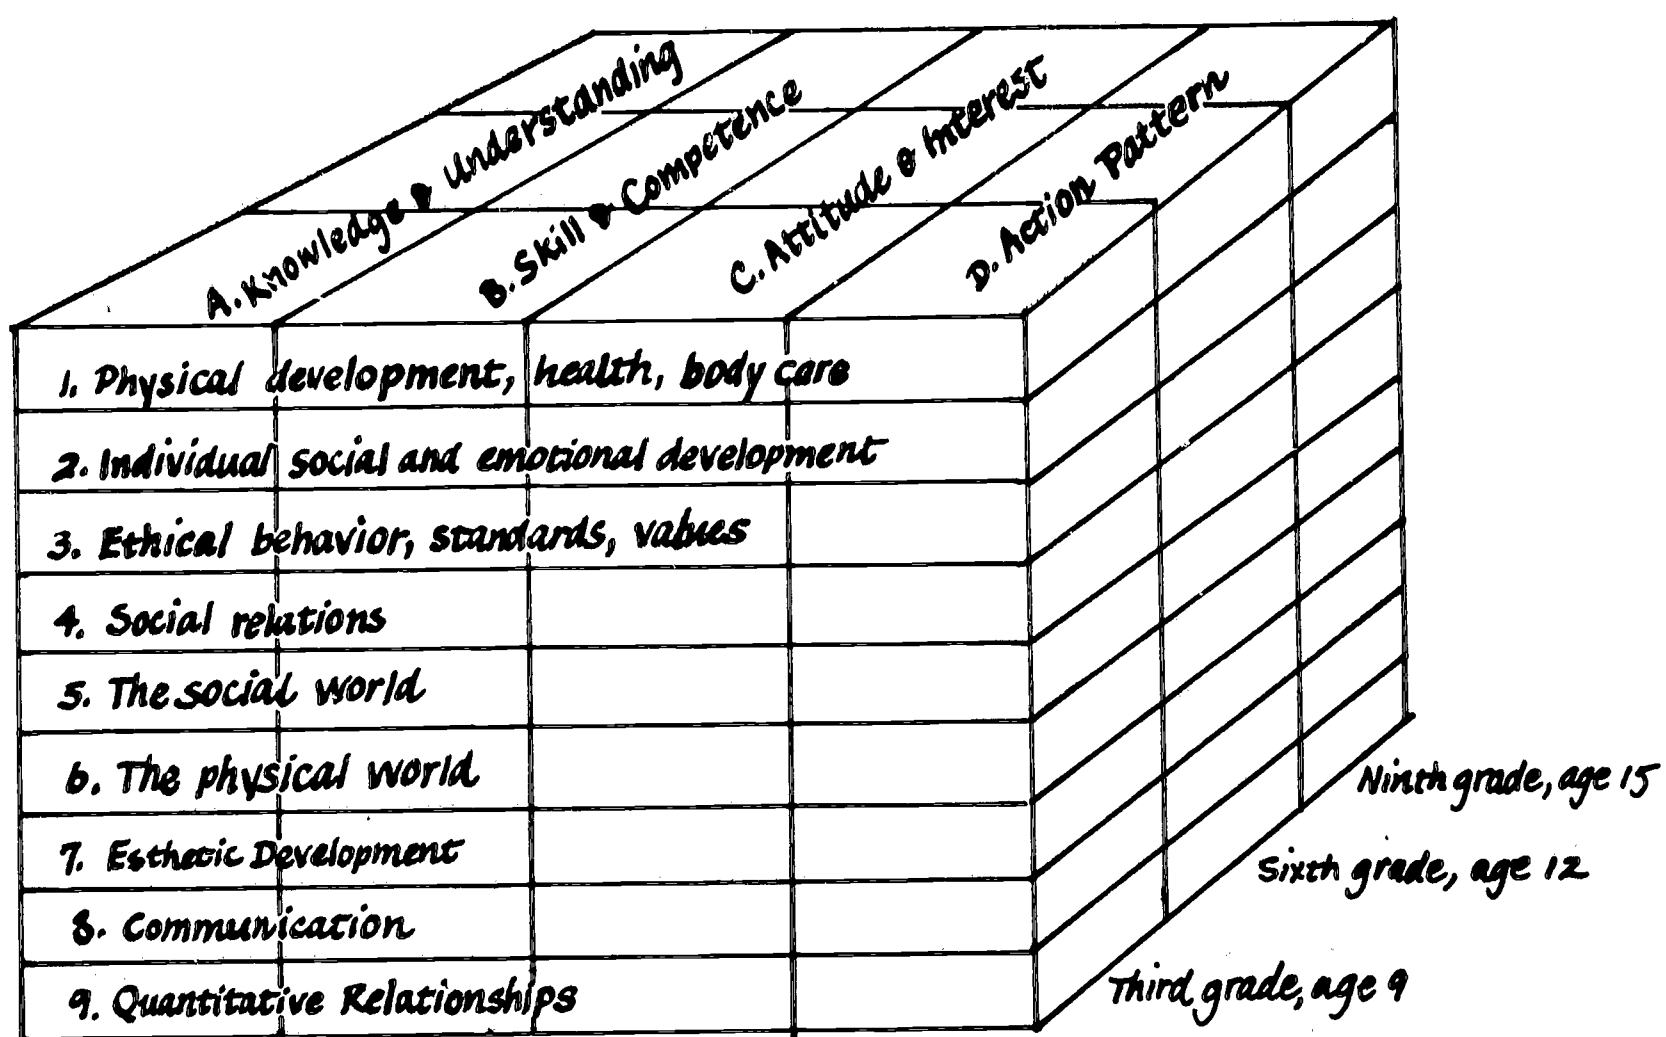 A. Knowledge & Understanding
B. Skill & Competence
C. Attitude & Interest
D. Action Pattern
1. Physical development, health, body care
2. Individual social and emotional development
3. Ethical behavior, standards, values
4. Social relations
5. The social world
6. The physical world
7. Esthetic Development
8. Communication
9. Quantitative Relationships
Ninth grade, age 15
Sixth grade, age 12
Third grade, age 9